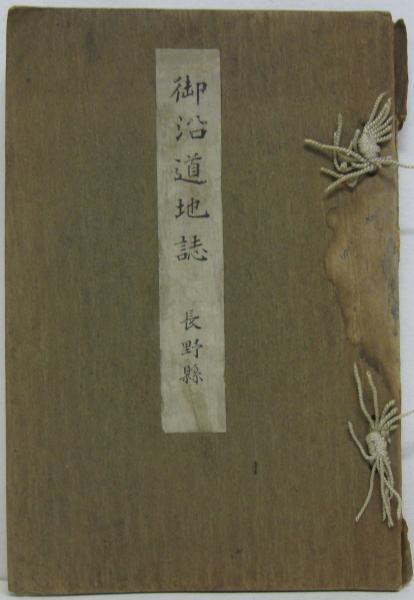 御沿道地誌
長野縣